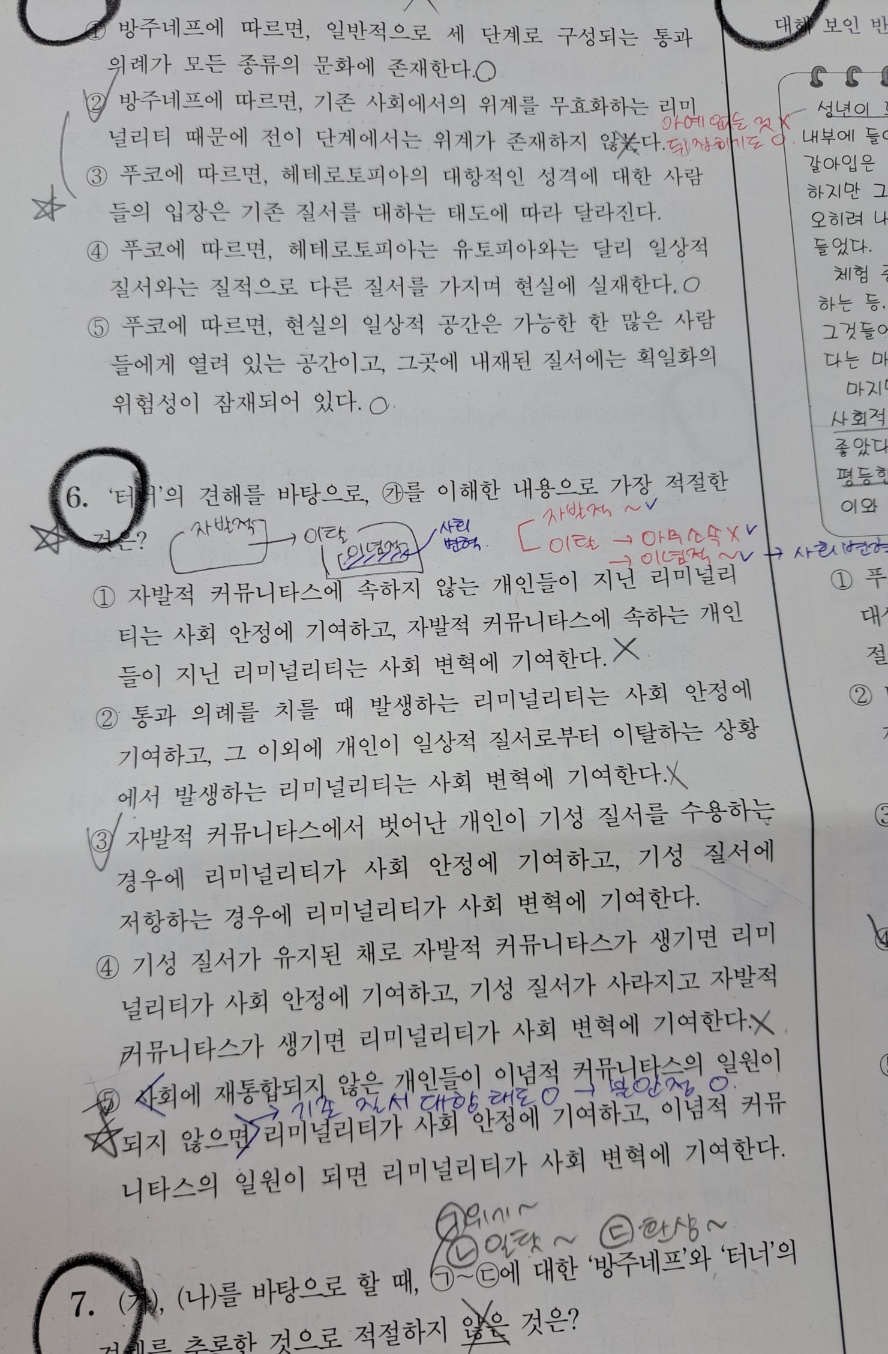 ① 방주네프에 따르면, 일반적으로 세 단계로 구성되는 통과
의례가 모든 종류의 문화에 존재한다.○
② 방주네프에 따르면, 기존 사회에서의 위계를 무효화하는 리미
널리티 때문에 전이 단계에서는 위계가 존재하지 않는다.
아예 없는 것 X
등장하기도 ○
③ 푸코에 따르면, 헤테로토피아의 대항적인 성격에 대한 사람
들의 입장은 기존 질서를 대하는 태도에 따라 달라진다.
④ 푸코에 따르면, 헤테로토피아는 유토피아와는 달리 일상적
질서와는 질적으로 다른 질서를 가지며 현실에 실재한다.○
⑤ 푸코에 따르면, 현실의 일상적 공간은 가능한 한 많은 사람
들에게 열려 있는 공간이고, 그곳에 내재된 질서에는 획일화의
위험성이 잠재되어 있다.○
6. '터너'의 견해를 바탕으로, ㉮를 이해한 내용으로 가장 적절한
것은?
자발적 → 이탈
이념적
사회
변혁
자발적 ~✓
이탈 → 아무 소속 X✓
→ 이념적 ~✓ → 사회변혁
① 자발적 커뮤니타스에 속하지 않는 개인들이 지닌 리미널리
티는 사회 안정에 기여하고, 자발적 커뮤니타스에 속하는 개인
들이 지닌 리미널리티는 사회 변혁에 기여한다.X
② 통과 의례를 치를 때 발생하는 리미널리티는 사회 안정에
기여하고, 그 이외에 개인이 일상적 질서로부터 이탈하는 상황
에서 발생하는 리미널리티는 사회 변혁에 기여한다.X
③ 자발적 커뮤니타스에서 벗어난 개인이 기성 질서를 수용하는
경우에 리미널리티가 사회 안정에 기여하고, 기성 질서에
저항하는 경우에 리미널리티가 사회 변혁에 기여한다.
④ 기성 질서가 유지된 채로 자발적 커뮤니타스가 생기면 리미
널리티가 사회 안정에 기여하고, 기성 질서가 사라지고 자발적
커뮤니타스가 생기면 리미널리티가 사회 변혁에 기여한다.X
⑤ 사회에 재통합되지 않은 개인들이 이념적 커뮤니타스의 일원이
→ 기존 질서 대항 태도 ○ → 불안정 ○.
되지 않으면 리미널리티가 사회 안정에 기여하고, 이념적 커뮤
니타스의 일원이 되면 리미널리티가 사회 변혁에 기여한다.
㉠위기~
㉡일탈~ ㉢환상~
7. (가), (나)를 바탕으로 할 때, ㉠~㉢에 대한 '방주네프'와 '터너'의
견해를 추론한 것으로 적절하지 않은 것은?
대해 보인 반
성년이
내부에 들어
갈아입은
하지만 그
오히려 나
들었다.
체험
하는 등,
그것들이
다는 마
마지
사회적
좋았다
평등한
이와
① 푸
대상
절
②
③
④